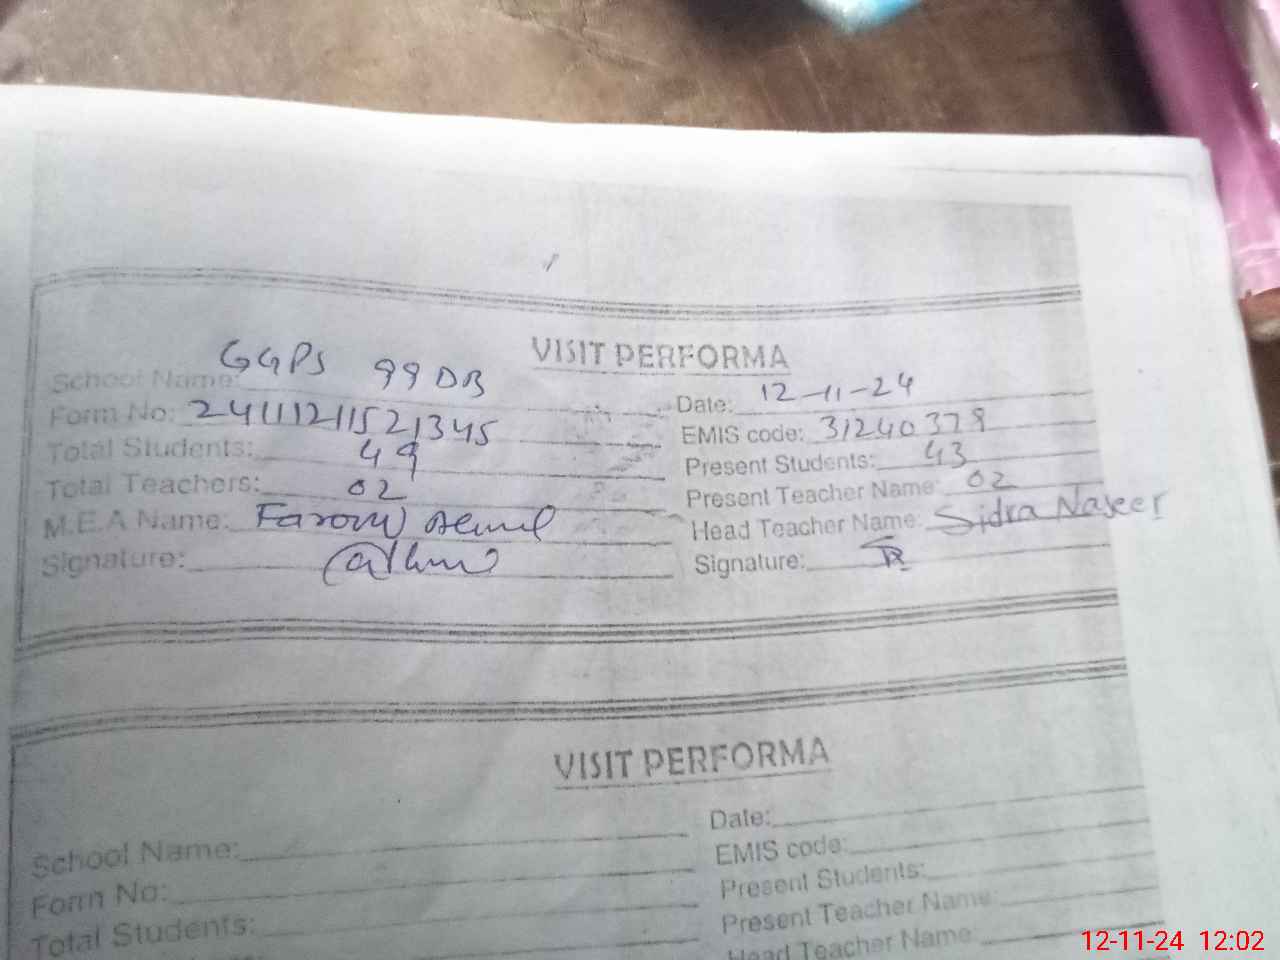 VISIT PERFORMA
School Name: GGPS 99 DB
Date: 12-11-24
Form No: 24111211521345
EMIS code: 31240378
Total Students: 49
Present Students: 43
Total Teachers: 02
Present Teacher Name: 02
M.E.A Name: Farooq
Head Teacher Name: Sidra Naseer
Signature:
Signature:
VISIT PERFORMA
School Name:
Date:
Form No:
EMIS code:
Total Students:
Present Students:
Present Teacher Name:
Head Teacher Name:
12-11-24 12:02